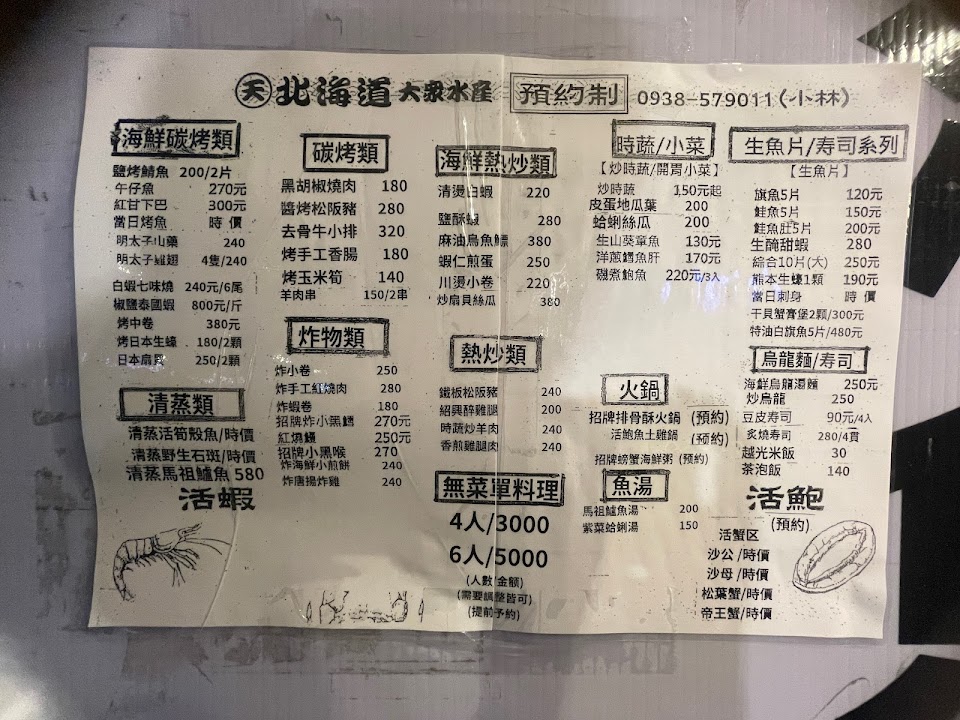 天 北海道大眾水產 預約制 0938-579011(小林)
海鮮碳烤類
鹽烤鯖魚 200/2片
午仔魚 270元
紅甘下巴 300元
當日烤魚 時價
明太子山藥 240
明太子雞翅 4隻/240
白蝦七味燒 240元/6尾
椒鹽泰國蝦 800元/斤
烤中卷 380元
烤日本生蠔 180/2顆
日本扇貝 250/2顆
清蒸類
清蒸活筍殼魚/時價
清蒸野生石斑/時價
清蒸馬祖鱸魚 580
活蝦
碳烤類
黑胡椒燒肉 180
醬烤松阪豬 280
去骨牛小排 320
烤手工香腸 180
烤玉米筍 140
羊肉串 150/2串
炸物類
炸小卷 250
炸手工紅燒肉 280
炸蝦卷 180
招牌炸小黑鱈 270元
紅燒鰻 250元
招牌小黑喉 270
炸海鮮小煎餅 240
炸唐揚炸雞 240
海鮮熱炒類
清燙白蝦 220
鹽酥蝦 280
麻油烏魚鰾 380
蝦仁煎蛋 250
川燙小卷 220
炒扇貝絲瓜 380
熱炒類
鐵板松阪豬 240
紹興醉雞腿 200
時蔬炒羊肉 240
香煎雞腿肉 240
無菜單料理
4人/3000
6人/5000
(人數/金額)
(需要調整皆可)
(提前予約)
時蔬/小菜
【炒時蔬/開胃小菜】
炒時蔬 150元起
皮蛋地瓜葉 200
蛤蜊絲瓜 200
生山葵章魚 130元
洋蔥鱈魚肝 170元
磯煮鮑魚 220元/3入
火鍋
招牌排骨酥火鍋 (預約)
活鮑魚土雞鍋 (預約)
招牌螃蟹海鮮粥 (預約)
魚湯
馬祖鱸魚湯 200
紫菜蛤蜊湯 150
生魚片/寿司系列
【生魚片】
旗魚5片 120元
鮭魚5片 150元
鮭魚肚5片 200元
生醃甜蝦 280
綜合10片(大) 250元
熊本生蠔1顆 190元
當日刺身 時價
干貝蟹膏堡2顆/300元
特油白旗魚5片/480元
烏龍麵/寿司
海鮮烏龍湯麵 250元
炒烏龍 250
豆皮寿司 90元/4入
炙燒寿司 280/4貫
越光米飯 30
茶泡飯 140
活鮑
(預約)
活蟹区
沙公/時價
沙母/時價
松葉蟹/時價
帝王蟹/時價